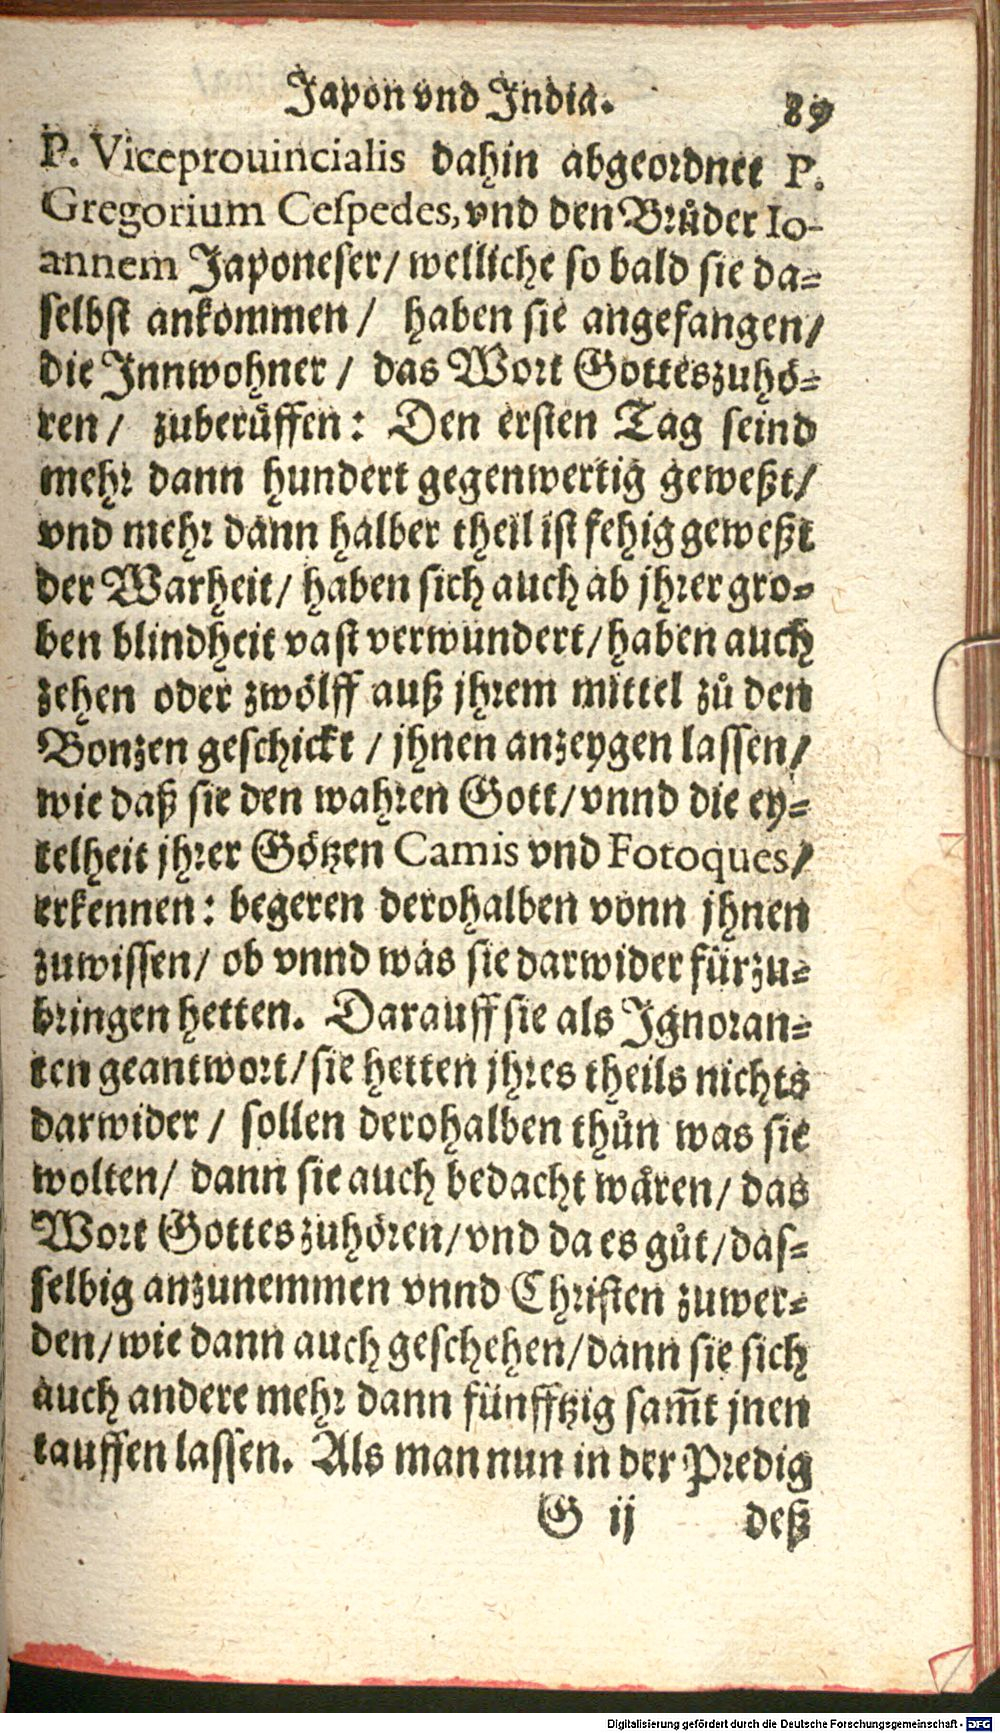 Japon vnd India. 89
P. Viceprouincialis dahin abgeordnet P.
Gregorium Ceſpedes, vnd den Brůder Io-
annem Japoneſer/ welliche ſo bald ſie da-
ſelbſt ankommen/ haben ſie angefangen/
die Innwohner/ das Wort Gottes zuhö-
ren/ zuberüffen: Den erſten Tag ſeind
mehr dann hundert gegenwertig geweßt/
vnd mehr dann halber theil iſt fehig geweßt
der Warheit/ haben ſich auch ab jhrer gro-
ben blindheit vaſt verwundert/ haben auch
zehen oder zwölff auß jhrem mittel zů den
Bonzen geſchickt/ jhnen anzeygen laſſen/
wie daß ſie den wahren Gott/ vnnd die ey-
telheit jhrer Götzen Camis vnd Fotoques/
erkennen: begeren derohalben vonn jhnen
zuwiſſen/ ob vnnd was ſie darwider fürzu-
bringen hetten. Darauff ſie als Ignoran-
ten geantwort/ ſie hetten jhres theils nichts
darwider/ ſollen derohalben thůn was ſie
wolten/ dann ſie auch bedacht wären/ das
Wort Gottes zuhören/ vnd da es gůt/ daſ-
ſelbig anzunemmen vnnd Chriſten zuwer-
den/ wie dann auch geſchehen/ dann ſie ſich
auch andere mehr dann fünfftzig sam̃t jnen
tauffen laſſen. Als man nun in der Predig
G ij deß
Digitalisierung gefördert durch die Deutsche Forschungsgemeinschaft - DFG